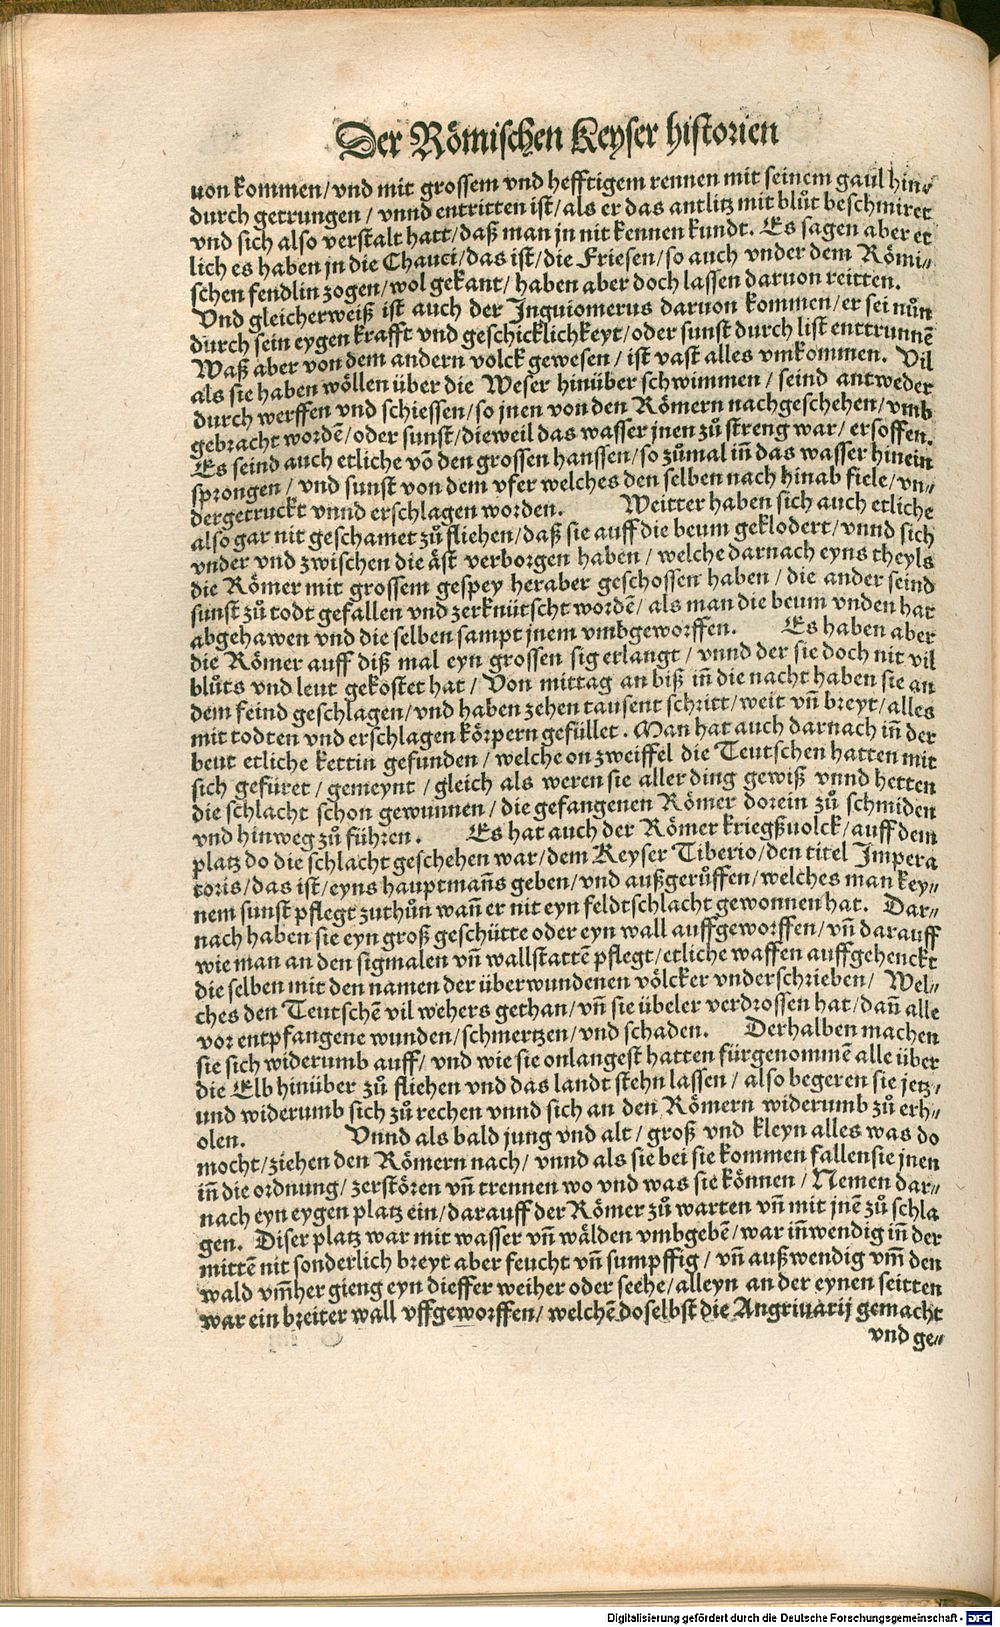 Der Römischen Keyser historien
uon kommen/vnd mit grossem vnd hefftigem rennen mit seinem gaul hin⸗
durch getrungen / vnnd entritten ist/als er das antlitz mit blůt beschmiret
vnd sich also verstalt hatt/daß man jn nit kennen kundt. Es sagen aber et
lich es haben jn die Chauci/das ist/die Friesen/so auch vnder dem Römi⸗
schen fendlin zogen/wol gekant/ haben aber doch lassen daruon reitten.
Vnd gleicherweiß ist auch der Inguiomerus daruon kommen/er sei nůn
durch sein eygen krafft vnd geschicklichkeyt/oder sunst durch list enttrunnē
Waß aber von dem andern volck gewesen / ist vast alles vmkommen. Vil
als sie haben wöllen über die Weser hinüber schwimmen / seind antweder
durch werffen vnd schiessen/so jnen von den Römern nachgeschehen/vmb
gebracht wordē/oder sunst/dieweil das wasser jnen zů streng war/ersoffen.
Es seind auch etliche vō den grossen hanssen/so zůmal iñ das wasser hinein
sprongen / vnd sunst von dem vfer welches den selben nach hinab fiele/vn⸗
dergetruckt vnnd erschlagen worden. Weitter haben sich auch etliche
also gar nit geschamet zů fliehen/daß sie auff die beum geklodert/vnnd sich
vnder vnd zwischen die äst verborgen haben / welche darnach eyns theyls
die Römer mit grossem gespey heraber geschossen haben / die ander seind
sunst zů todt gefallen vnd zerknütscht wordē/ als man die beum vnden hat
abgehawen vnd die selben sampt jnem vmbgeworffen. Es haben aber
die Römer auff diß mal eyn grossen sig erlangt / vnnd der sie doch nit vil
blůts vnd leut gekostet hat / Von mittag an biß iñ die nacht haben sie an
dem feind geschlagen/vnd haben zehen tausent schritt/weit vñ breyt/alles
mit todten vnd erschlagen körpern gefüllet. Man hat auch darnach iñ der
beut etliche kettin gefunden / welche on zweiffel die Teutschen hatten mit
sich gefüret / gemeynt / gleich als weren sie aller ding gewiß vnnd hetten
die schlacht schon gewunnen / die gefangenen Römer dorein zů schmiden
vnd hinweg zů führen. Es hat auch der Römer kriegßuolck/auff dem
platz do die schlacht geschehen war/dem Keyser Tiberio/den titel Impera
toris/das ist/eyns hauptmañs geben/vnd außgerůffen/welches man key⸗
nem sunst pflegt zuthůn wañ er nit eyn feldtschlacht gewonnen hat. Dar⸗
nach haben sie eyn groß geschütte oder eyn wall auffgeworffen/vñ darauff
wie man an den sigmalen vñ wallstattē pflegt/etliche waffen auffgehenckt
die selben mit den namen der überwundenen völcker vnderschrieben/ Wel⸗
ches den Teutschē vil wehers gethan/vñ sie übeler verdrossen hat/dañ alle
vor entpfangene wunden/schmertzen/vnd schaden. Derhalben machen
sie sich widerumb auff/ vnd wie sie onlangest hatten fürgenommē alle über
die Elb hinüber zů fliehen vnd das landt stehn lassen / also begeren sie jetz⸗
und widerumb sich zů rechen vnnd sich an den Römern widerumb zů erh⸗
olen. Vnnd als bald jung vnd alt / groß vnd kleyn alles was do
mocht/ziehen den Römern nach/ vnnd als sie bei sie kommen fallen sie jnen
iñ die ordnung/ zerstören vñ trennen wo vnd was sie können / Nemen dar⸗
nach eyn eygen platz ein/darauff der Römer zů warten vñ mit jnē zů schla
gen. Diser platz war mit wasser vñ wälden vmbgebē/war iñwendig iñ der
mittē nit sonderlich breyt aber feucht vñ sumpffig / vñ außwendig vm̃ den
wald vm̃her gieng eyn dieffer weiher oder seehe/alleyn an der eynen seitten
war ein breiter wall vffgeworffen/ welchē doselbst die Angriuarij gemacht
vnd ge⸗
Digitalisierung gefördert durch die Deutsche Forschungsgemeinschaft - DFG